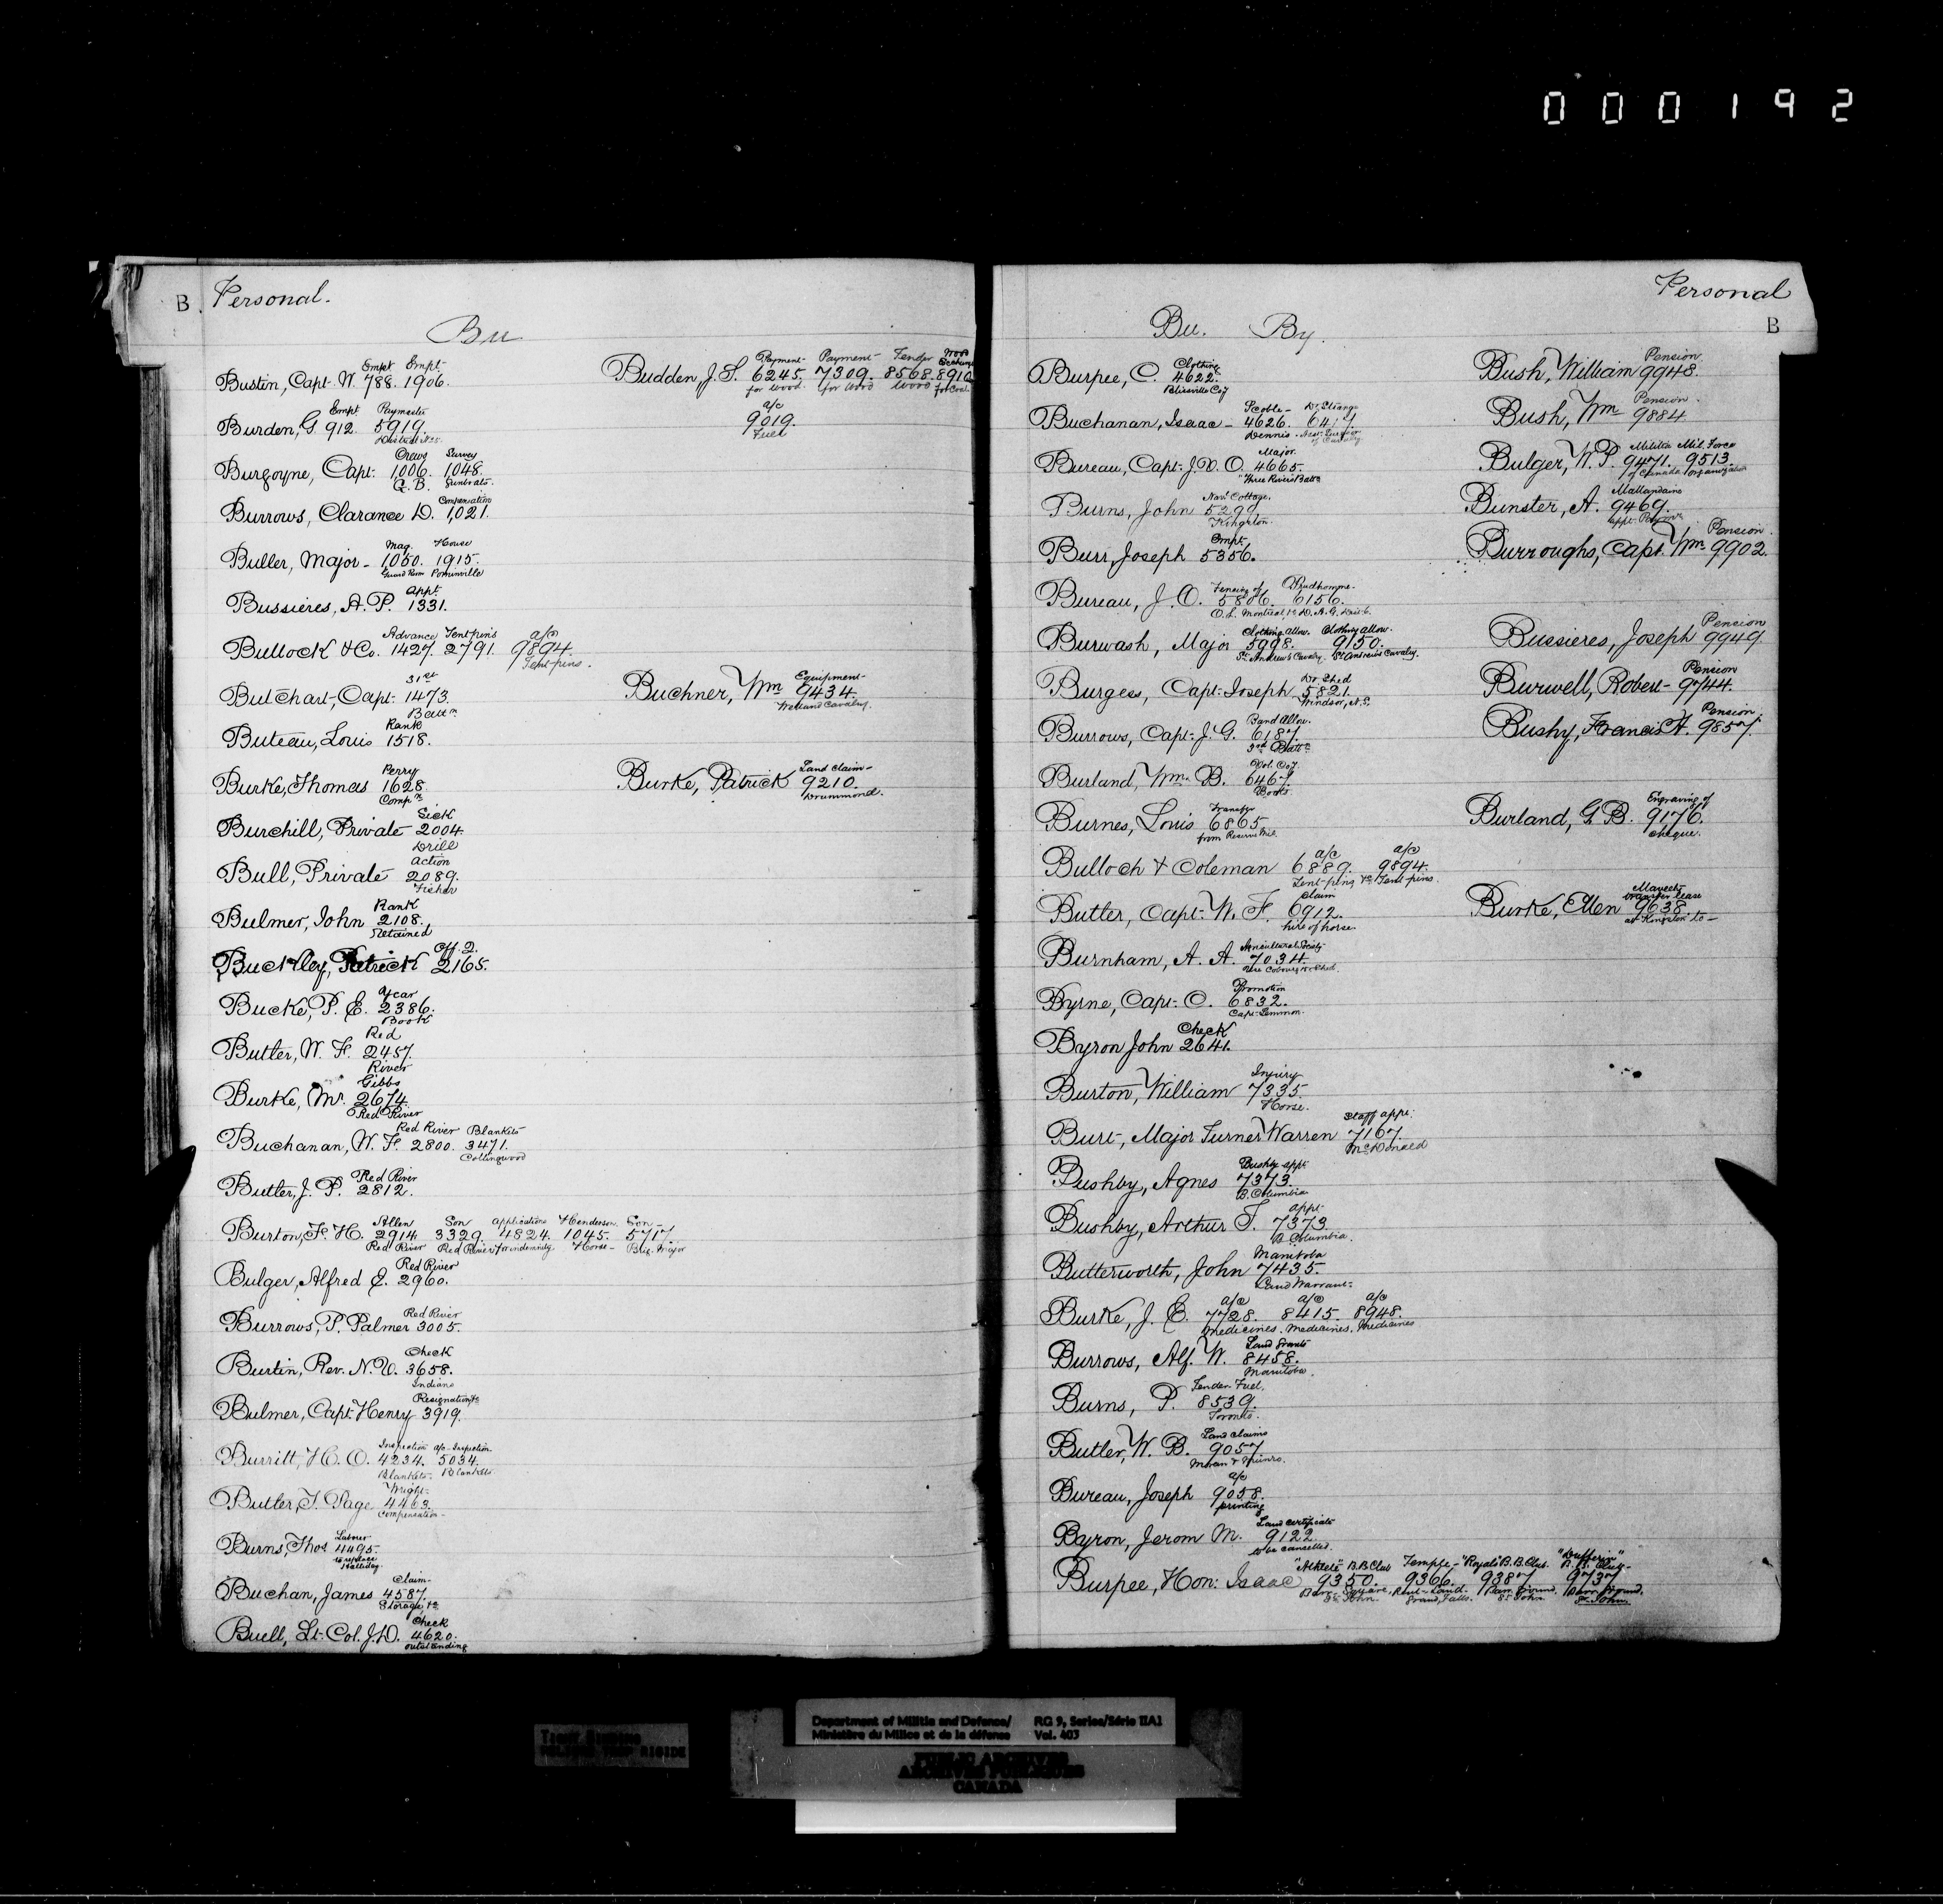 000192
B. Personal.
Bu
Empt Empt
Bustin, Capt. W. 788. 1906.
Empt Paymaster
Burden, G. 912. 5919.
Crews Survey
Burgoyne, Capt. 1006. 1048.
G.B. Gunboats.
Compensation
Burrows, Clarance D. 1021.
Mag. House
Buller, Major - 1050. 1915.
Guard Room Pominville
Appt.
Bussieres, A. P. 1331.
Advance Tent pins a/c
Bullock & Co. 1427. 2791. 9894.
Tent-pins.
31st
Butchart, Capt. 1473.
Battn.
Rank
Buteau, Louis 1518.
Perry
Burke, Thomas 1628.
Compn.
Sick
Burchill, Private 2004.
Drill
Action
Bull, Private 2089.
Fisher
Rank
Bulmer, John 2108.
Retained
Off. 2.
Buckley, Patrick 2165.
Year
Bucke, P. E. 2386.
Book
Red
Butler, W. F. 2457.
River
Gibbs
Burke, Mr. 2674.
Red River
Red River Blankets
Buchanan, W. F. 2800. 3471.
Collingwood
Red River
Butler, J. P. 2812.
Allen Son Applications Henderson Son
Burton, F. H. 2914. 3329. 4824. 1045. 5717.
Red River Red River for indemnity. Horse - Brig. Major
Red River
Bulger, Alfred E. 2960.
Red River
Burrows, P. Palmer 3005.
Check
Burtin, Rev. N. V. 3658.
Indians
Resignation &c
Bulmer, Capt. Henry 3919.
Inspection a/c - Inspection
Burritt, H. O. 4234. 5034.
Blankets. Blankets
Wright
Butler, T. Page 4463.
Compensation -
Burns, Thos. 4495.
to replace
Halliday
Claim
Buchan, James 4587.
Storage &c
Check
Buell, Lt. Col. J. D. 4620.
outstanding
Payment Payment Tender Wood
Budden, J. S. 6245. 7309. 8568. 8910
for wood for Wood Wood for Coal.
a/c
9019.
Fuel
Equipment
Buchner, Wm 9434.
Welland Cavalry.
Land Claim
Burke, Patrick 9210.
Drummond.
Personal
B
Bu. By.
Clothing
Burpee, C. 4622.
Blissville Coy
Scoble - Dr. Strange
Buchanan, Isaac - 4626. 6417.
Dennis. Asst. Surgeon of Cavalry.
Major
Bureau, Capt. J. N. O. 4665.
Three Rivers Battn
Navl Cottage.
Burns, John 5299
Kingston.
Empt.
Burr, Joseph 5356.
Fencing of Prudhomme
Bureau, J. O. 5806. 6156.
Clothing allow. Clothing allow.
Burwash, Major 5998. 9150.
St. Andrew's Cavalry. St. Andrews Cavalry.
Dr. Shed
Burgess, Capt. Joseph 5821.
Windsor, N.S.
Band Allow.
Burrows, Capt. J. G. 6187.
Vol. Coy.
Burland, Wm. B. 6467.
Books
Transfer
Burnes, Louis 6865.
from Reserve Mil.
a/c a/c
Bulloch & Coleman 6889. 9894.
Tent-pins &c Tent-pins.
Claim
Butler, Capt. W. F. 6912.
hire of horse.
Agricultural Society
Burnham, A. A. 7034.
Use Cobourg Dr. Shed.
Promotion
Byrne, Capt. C. 6832.
Capt. Lemmon.
Check
Byron John 2641.
Injury
Burton, William 7335.
Horse.
Staff appt.
Burt, Major Turner Warren 7167.
McDonald
Bushby appt.
Bushby, Agnes 7373.
B. Columbia
appt
Bushby, Arthur T. 7373.
B. Columbia.
Manitoba
Butterworth, John 7435.
Land Warrant.
a/c a/c a/c
Burke, J. E. 7728. 8415. 8948.
Medicines. Medicines. Medicines
Land Grants
Burrows, Alf. W. 8458.
Manitoba.
Tender Fuel.
Burns, P. 8539.
Toronto.
Land Claims
Butler, W. B. 9057.
Moran & Munro.
a/c
Bureau, Joseph 9058.
printing
Land Certificate
Byron, Jerom M. 9122.
to be cancelled.
"Athlete" B.B. Club Temple - "Royals" B.B. Club. "Dufferin" B. B. Club -
Burpee, Hon: Isaac 9350. 9366. 9387 9737
Barr. Square, Rent - Land. Barr. Ground. Barr. Ground,
St. John. Grand Falls. St. John St. John
Pension
Bush, William 9948.
Pension
Bush, Wm 9884
Militia Mil. Force
Bulger, W. P. 9471. 9513.
of Canada organization
Mallandaine
Bunster, A. 9469.
Pension
Burroughs, Capt. Wm 9902.
Pension
Bussieres, Joseph 9949.
Pension
Burwell, Robert - 9744.
Pension
Bushy, Francis A. 9857.
Engraving of
Burland, G. B. 9176.
cheque.
transfer lease
Burke, Ellen 9638.
at Kingston to -
Department of Militia and Defence/ RG 9, Series/Série IIA1
Ministère du Milice et de la défense Vol. 403
PUBLIC ARCHIVES
ARCHIVES PUBLIQUES
CANADA